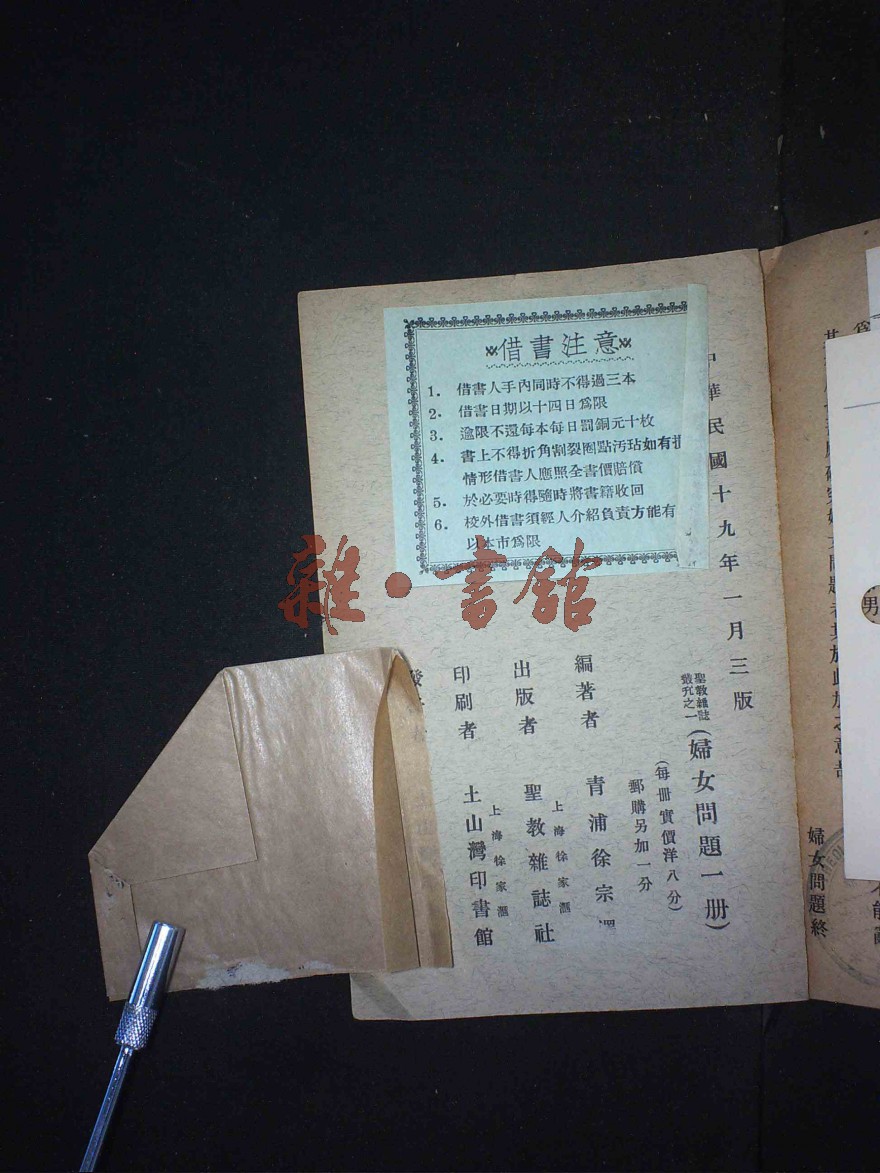 借書注意
1. 借書人手內同時不得過三本
2. 借書日期以十四日爲限
3. 逾限不還每本每日罰銅元十枚
4. 書上不得折角割裂圈點汚玷如有
情形借書人應照全書價賠償
5. 於必要時得隨時將書籍收回
6. 校外借書須經人介紹負責方能有
以本市爲限
雜·書館
中華民國十九年一月三版
聖教雜誌
叢刋之一
(婦女問題一册)
(每冊實價洋八分)
郵購另加一分
編著者 青浦徐宗
上海徐家滙
出版者 聖教雜誌社
上海徐家滙
印刷者 土山灣印書館
婦女問題終
男